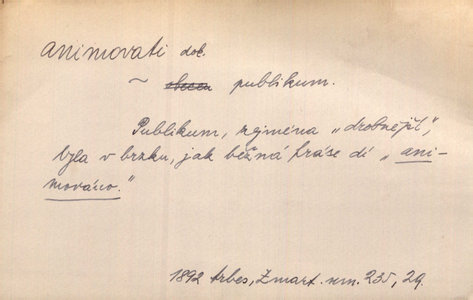 animovati dok.
~ obecen. publikum.
Publikum, zejména „drobnější“,
byla v brzku, jak běžná fráse dí „ani-
mováno.“
1892 Arbes, Z mart. rom. 235, 29.